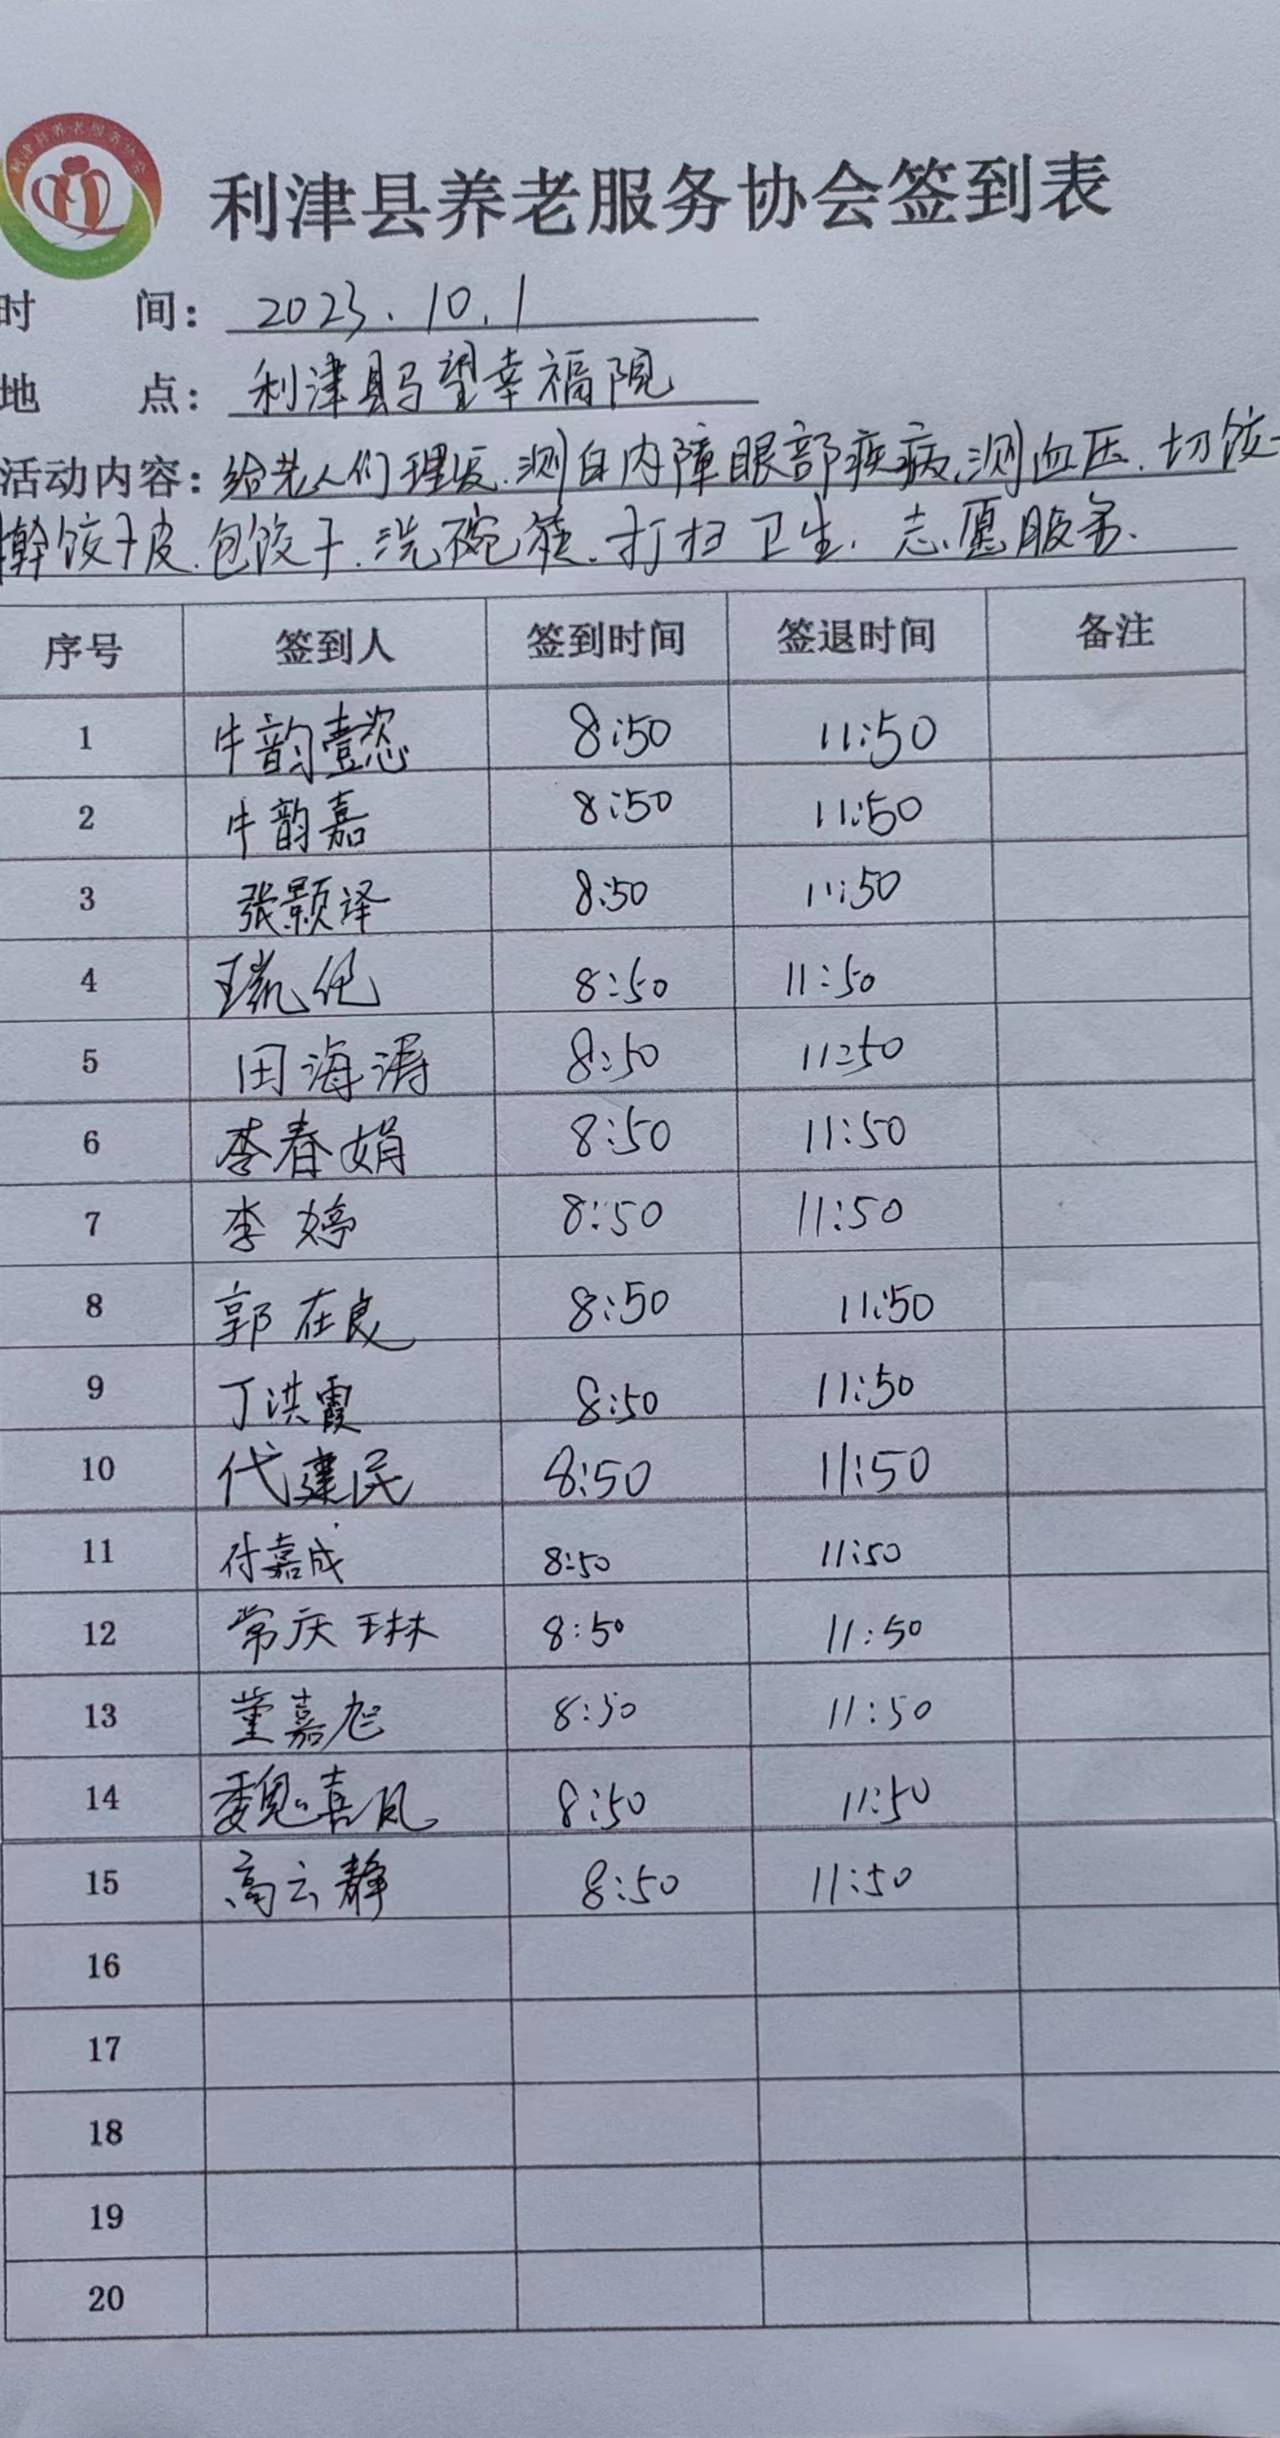 利津县养老服务协会
利津县养老服务协会签到表
时 间: 2023.10.1
地 点: 利津县马望幸福院
活动内容: 给老人们理发.测白内障眼部疾病.测血压.切饺
擀饺子皮.包饺子.洗碗筷.打扫卫生.志愿服务.
序号 签到人 签到时间 签退时间 备注
1 牛韵壹恣 8:50 11:50
2 牛韵嘉 8:50 11:50
3 张颢译 8:50 11:50
4 8:50 11:50
5 田海涛 8:50 11:50
6 李春娟 8:50 11:50
7 李婷 8:50 11:50
8 郭在良 8:50 11:50
9 丁洪霞 8:50 11:50
10 代建民 8:50 11:50
11 付嘉成 8:50 11:50
12 常庆琳 8:50 11:50
13 董嘉旭 8:50 11:50
14 魏喜凤 8:50 11:50
15 高云静 8:50 11:50
16
17
18
19
20